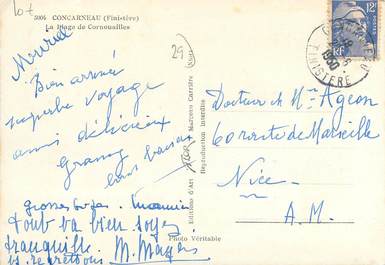 5006 CONCARNEAU (Finistère)
La Plage de Cornouailles
29
Bien arrivé
superbe voyage
amis délicieux
Granny
bons baisers
grosses
tout va bien soyez
tranquille.
regrettons
Editions d'Art
Marceau Carrière
Reproduction interdite
Photo Véritable
12F
RF
FINISTERE
Docteur et Mme Ageon
60 route de Marseille
Nice
A. M.